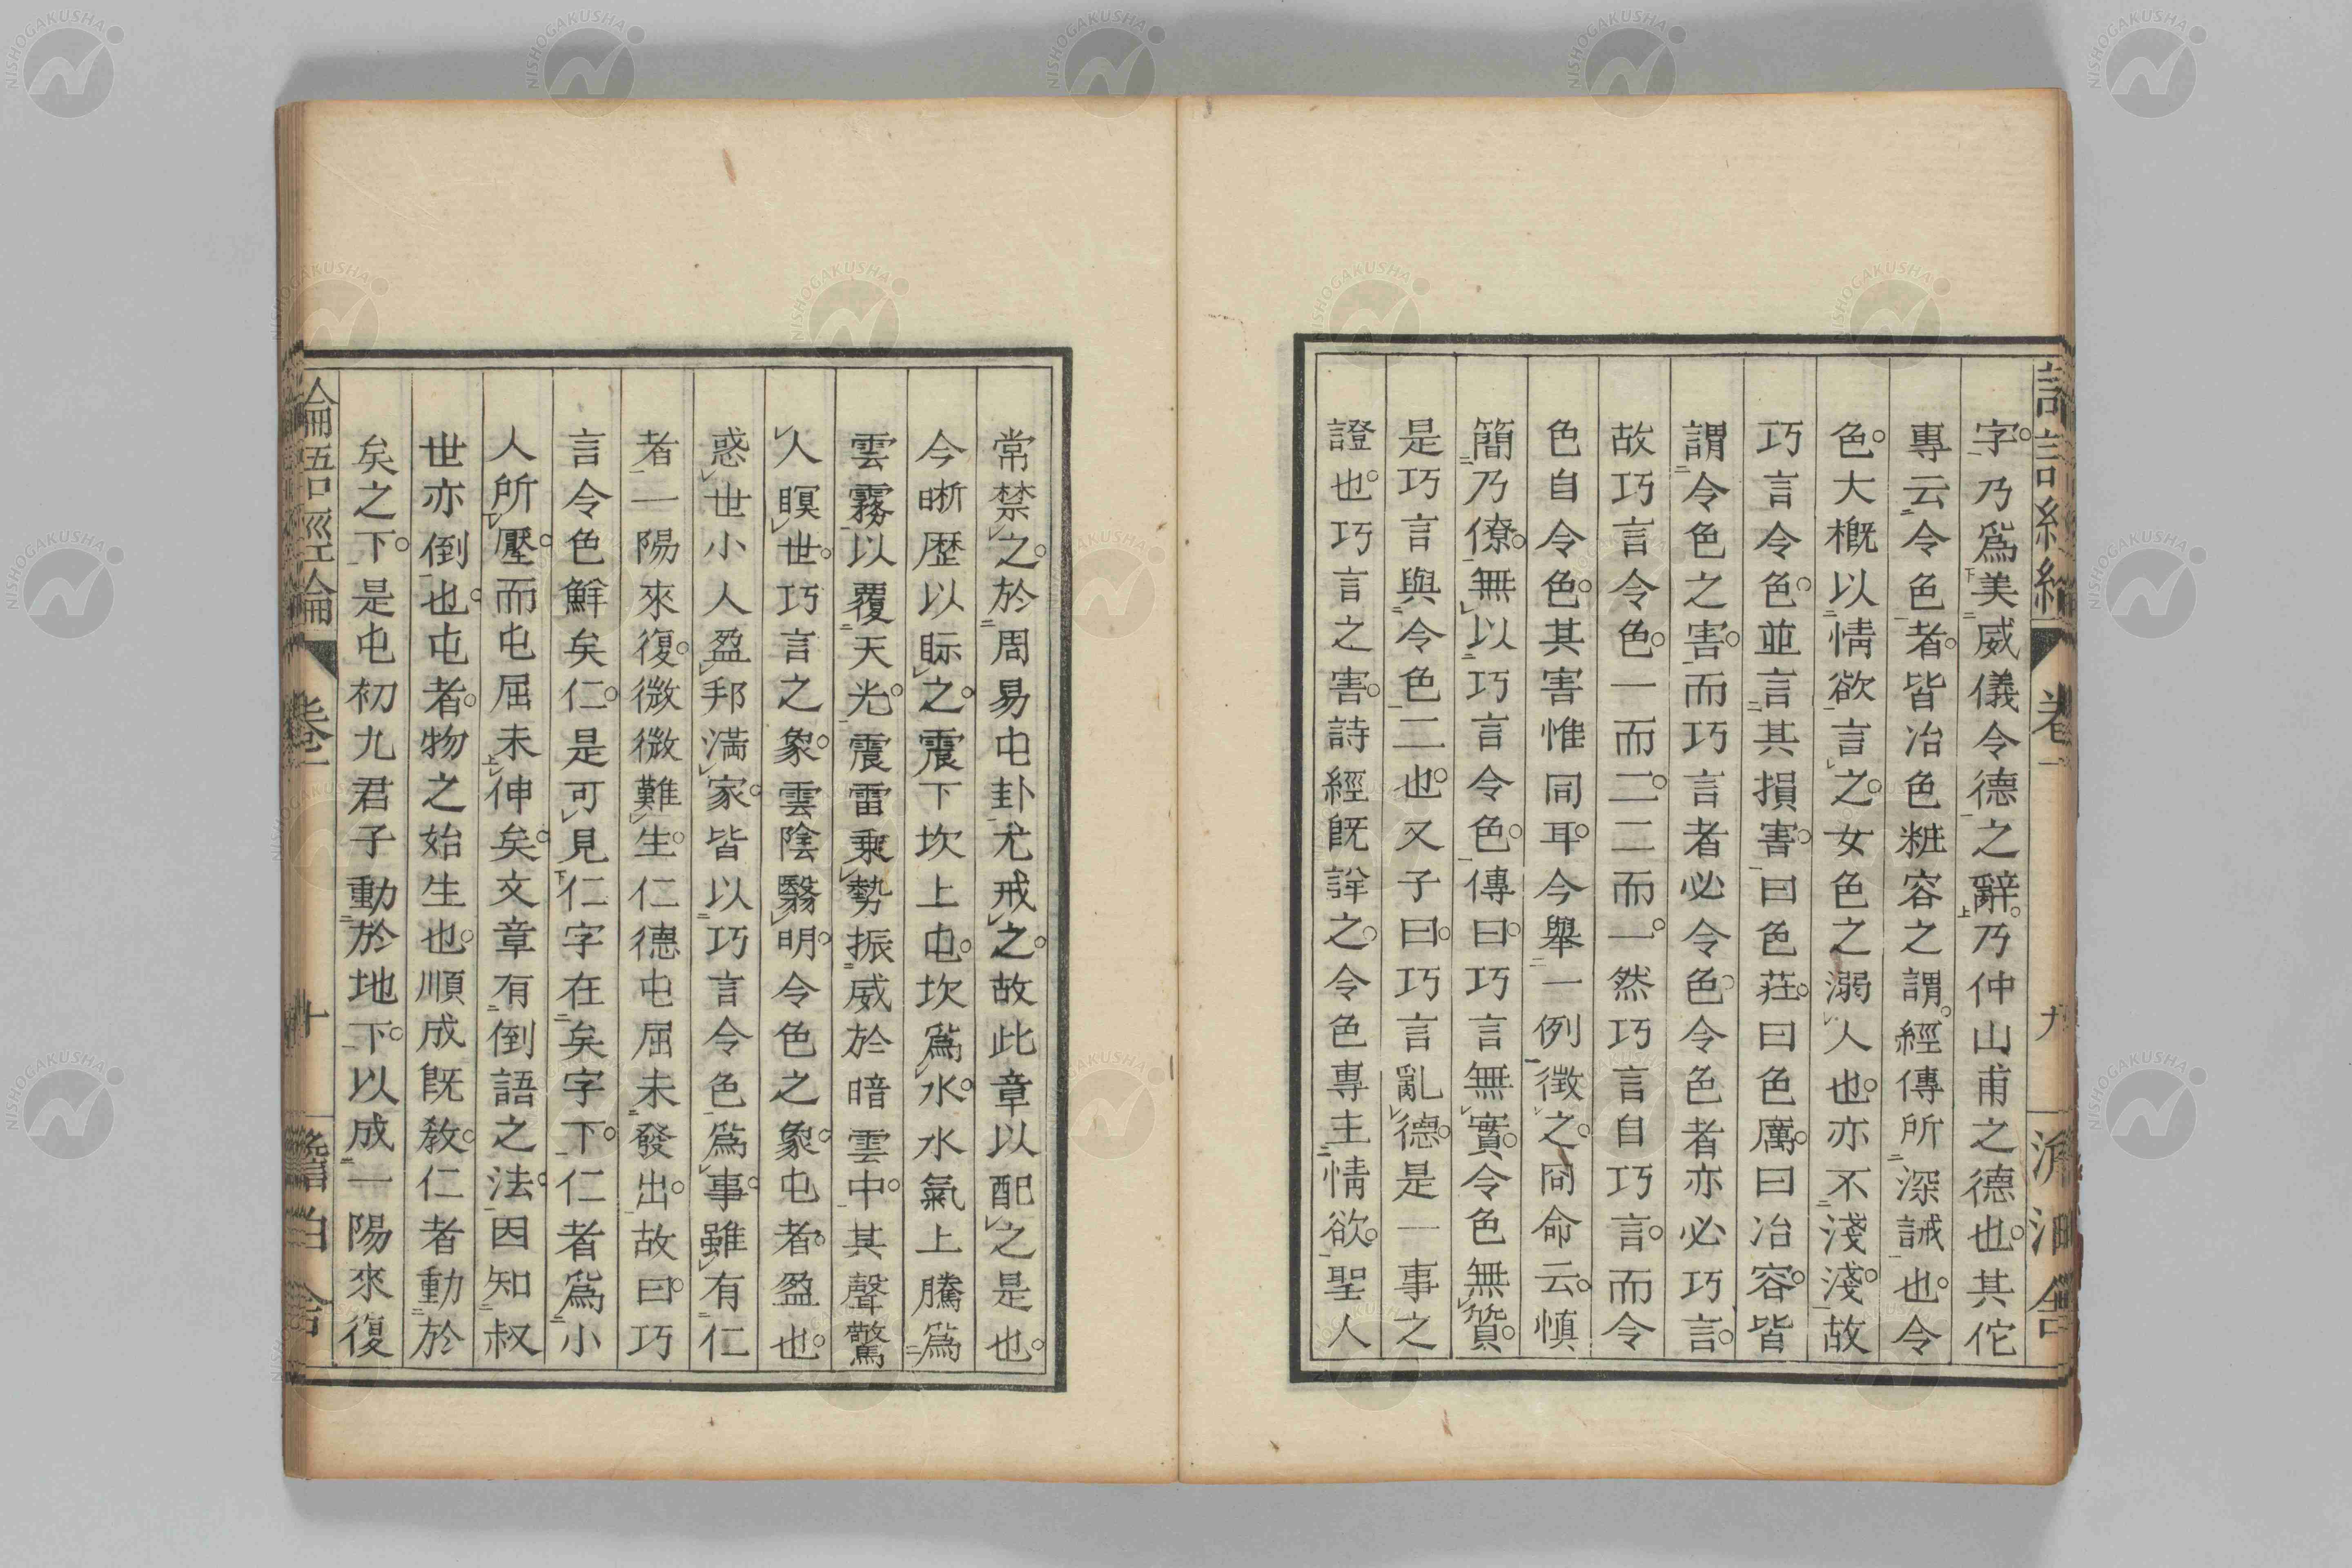 字。乃爲美威儀令德之辭。乃仲山甫之德也。其佗
專云令色者。皆冶色粧容之謂。經傳所深誡也。令
色。大概以情欲言之。女色之溺人也。亦不淺淺。故
巧言令色。並言其損害。曰色莊。曰色厲。曰冶容。皆
謂令色之害。而巧言者必令色。令色者亦必巧言。
故巧言令色。一而二。二而一。然巧言自巧言。而令
色自令色。其害惟同耳。今舉一例徵之。冏命云。慎
簡乃僚。無以巧言令色。傳曰。巧言無實。令色無質。
是巧言與令色二也。又子曰。巧言亂德。是一事之
證也。巧言之害。詩經既詳之。令色專主情欲。聖人
常禁之。於周易屯卦尤戒之。故此章以配之是也。
今晰歷以眎之。震下坎上屯。坎爲水。水氣上騰爲
雲霧以覆天光。震雷乘勢振威於暗雲中。其聲驚
人瞑世。巧言之象。雲陰翳明。令色之象。屯者。盈也。
惑世小人盈邦滿家。皆以巧言令色爲事。雖有仁
者一陽來復。微微難生。仁德屯屈未發出。故曰。巧
言令色鮮矣仁。是可見仁字在矣字下。仁者爲小
人所壓。而屯屈未伸矣。文章有倒語之法。因知叔
世亦倒也。屯者。物之始生也。順成既教。仁者動於
矣之下。是屯初九君子動於地下。以成一陽來復
論語經論 卷一 十
卷一 九